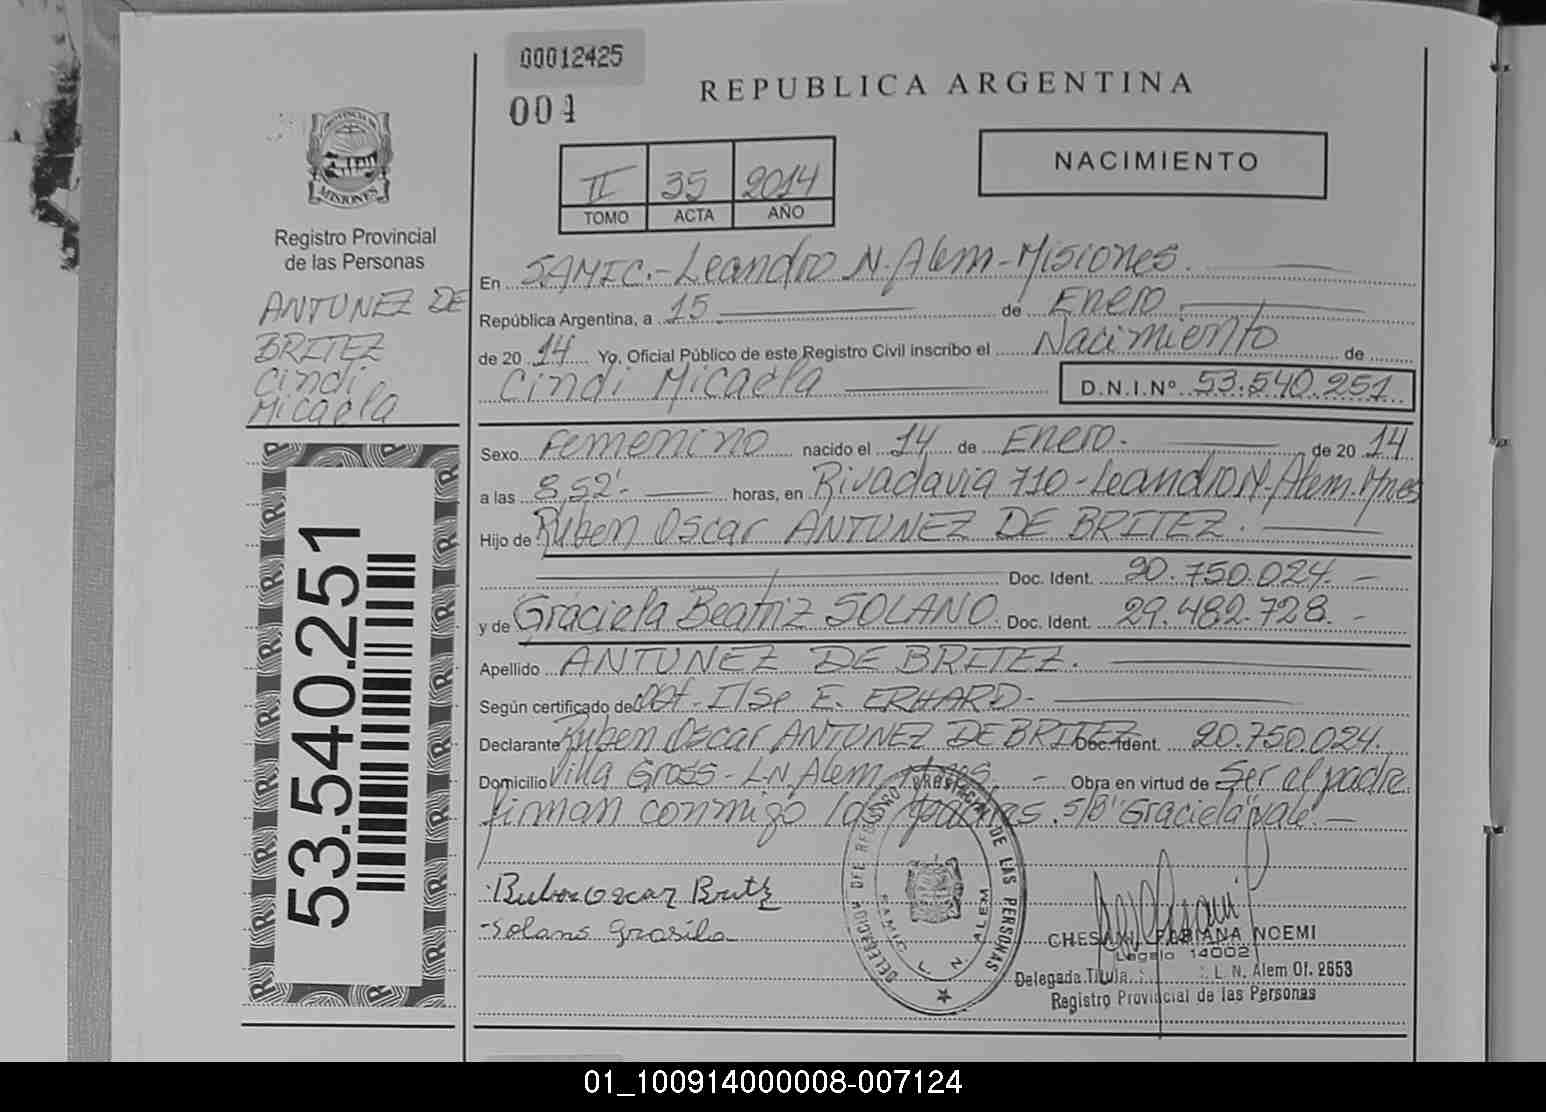 00012425
004
REPUBLICA ARGENTINA
NACIMIENTO
II 35 2014
TOMO ACTA AÑO
PROVINCIA DE
MISIONES
Registro Provincial
de las Personas
ANTUNEZ DE
BRITEZ
Cindi
Micaela
53.540.251
En SAMIC.- Leandro N. Alem - Misiones.
República Argentina, a 15 de Enero
de 20 14 Yo, Oficial Público de este Registro Civil inscribo el Nacimiento de
Cindi Micaela D.N.I.Nº 53.540.251
Sexo Femenino nacido el 14 de Enero. de 20 14
a las 8,52'- horas, en Rivadavia 710 - Leandro N. Alem. Mnes
Hijo de Ruben Oscar ANTUNEZ DE BRITEZ.
Doc. Ident. 20.750.024. -
y de Graciela Beatriz SOLANO Doc. Ident. 29.482.728. -
Apellido ANTUNEZ DE BRITEZ.
Según certificado de Obt. Ilse E. ERHARD-
Declarante Ruben Oscar ANTUNEZ DE BRITEZ Doc. Ident. 20.750.024.
Domicilio Villa Gross - L.N. Alem, Mnes. - Obra en virtud de ser el padre
firman conmigo los padres. S/B "Graciela" vale. -
Ruben Oscar Britz
Solano Grasila
DELEGACION DEL REGISTRO PROVINCIAL DE LAS PERSONAS
SAMIC L. N. ALEM
CHESANI, FABIANA NOEMI
Legajo 14002
Delegada Titular L. N. Alem Of. 2653
Registro Provincial de las Personas
01_100914000008-007124